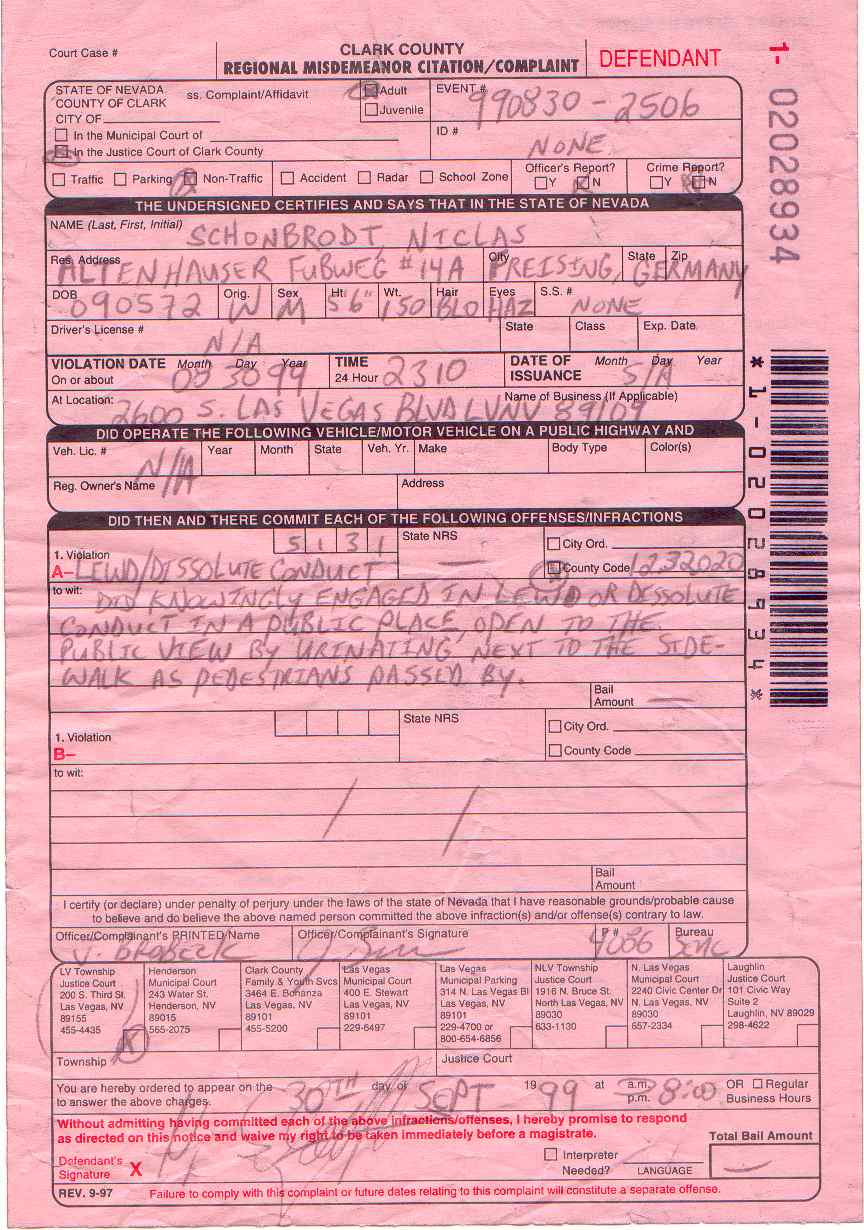 Court Case #
CLARK COUNTY
REGIONAL MISDEMEANOR CITATION/COMPLAINT
DEFENDANT
1- 02028934
STATE OF NEVADA
COUNTY OF CLARK ss. Complaint/Affidavit
CITY OF
Adult
Juvenile
EVENT # 990830-2506
In the Municipal Court of
In the Justice Court of Clark County
ID # NONE
Traffic Parking Non-Traffic Accident Radar School Zone
Officer's Report? Y N
Crime Report? Y N
THE UNDERSIGNED CERTIFIES AND SAYS THAT IN THE STATE OF NEVADA
NAME (Last, First, Initial) SCHONBRODT, NICLAS
Res. Address City State Zip
ALTENHAUSER FUBWEG #14A FREISING, GERMANY
DOB Orig. Sex Ht. Wt. Hair Eyes S.S. #
090572 W M 5'6" 150 BLO HAZ NONE
Driver's License # State Class Exp. Date
N/A
VIOLATION DATE Month Day Year TIME DATE OF Month Day Year
On or about 083099 24 Hour 2310 ISSUANCE S/A
At Location: Name of Business (If Applicable)
2600 S. LAS VEGAS BLVD LVNV 89109
DID OPERATE THE FOLLOWING VEHICLE/MOTOR VEHICLE ON A PUBLIC HIGHWAY AND
Veh. Lic. # Year Month State Veh. Yr. Make Body Type Color(s)
N/A
Reg. Owner's Name Address
*1-02028934*
DID THEN AND THERE COMMIT EACH OF THE FOLLOWING OFFENSES/INFRACTIONS
1. Violation 5131 State NRS City Ord.
A– LEWD/DISSOLUTE CONDUCT — County Code 1232020
to wit: DID KNOWINGLY ENGAGED IN LEWD OR DISSOLUTE
CONDUCT IN A PUBLIC PLACE, OPEN TO THE
PUBLIC VIEW BY URINATING NEXT TO THE SIDE-
WALK AS PEDESTRIANS PASSED BY.
Bail
Amount —
1. Violation State NRS City Ord.
B– County Code
to wit:
Bail
Amount
I certify (or declare) under penalty of perjury under the laws of the state of Nevada that I have reasonable grounds/probable cause
to believe and do believe the above named person committed the above infraction(s) and/or offense(s) contrary to law.
Officer/Complainant's PRINTED Name Officer/Complainant's Signature P # Bureau
J. BROBECK 4086
LV Township
Justice Court
200 S. Third St.
Las Vegas, NV
89155
455-4435
Henderson
Municipal Court
243 Water St.
Henderson, NV
89015
565-2075
Clark County
Family & Youth Svcs
3464 E. Bonanza
Las Vegas, NV
89101
455-5200
Las Vegas
Municipal Court
400 E. Stewart
Las Vegas, NV
89101
229-6497
Las Vegas
Municipal Parking
314 N. Las Vegas Bl
Las Vegas, NV
89101
229-4700 or
800-654-6856
NLV Township
Justice Court
1916 N. Bruce St.
North Las Vegas, NV
89030
633-1130
N. Las Vegas
Municipal Court
2240 Civic Center Dr
N. Las Vegas, NV
89030
657-2334
Laughlin
Justice Court
101 Civic Way
Suite 2
Laughlin, NV 89029
298-4622
Township Justice Court
You are hereby ordered to appear on the 30TH day of SEPT 1999 at a.m. 8:00 OR Regular
to answer the above charges. p.m. Business Hours
Without admitting having committed each of the above infractions/offenses, I hereby promise to respond
as directed on this notice and waive my right to be taken immediately before a magistrate.
Total Bail Amount
—
Defendant's
Signature X
Interpreter
Needed? LANGUAGE
REV. 9-97 Failure to comply with this complaint or future dates relating to this complaint will constitute a separate offense.